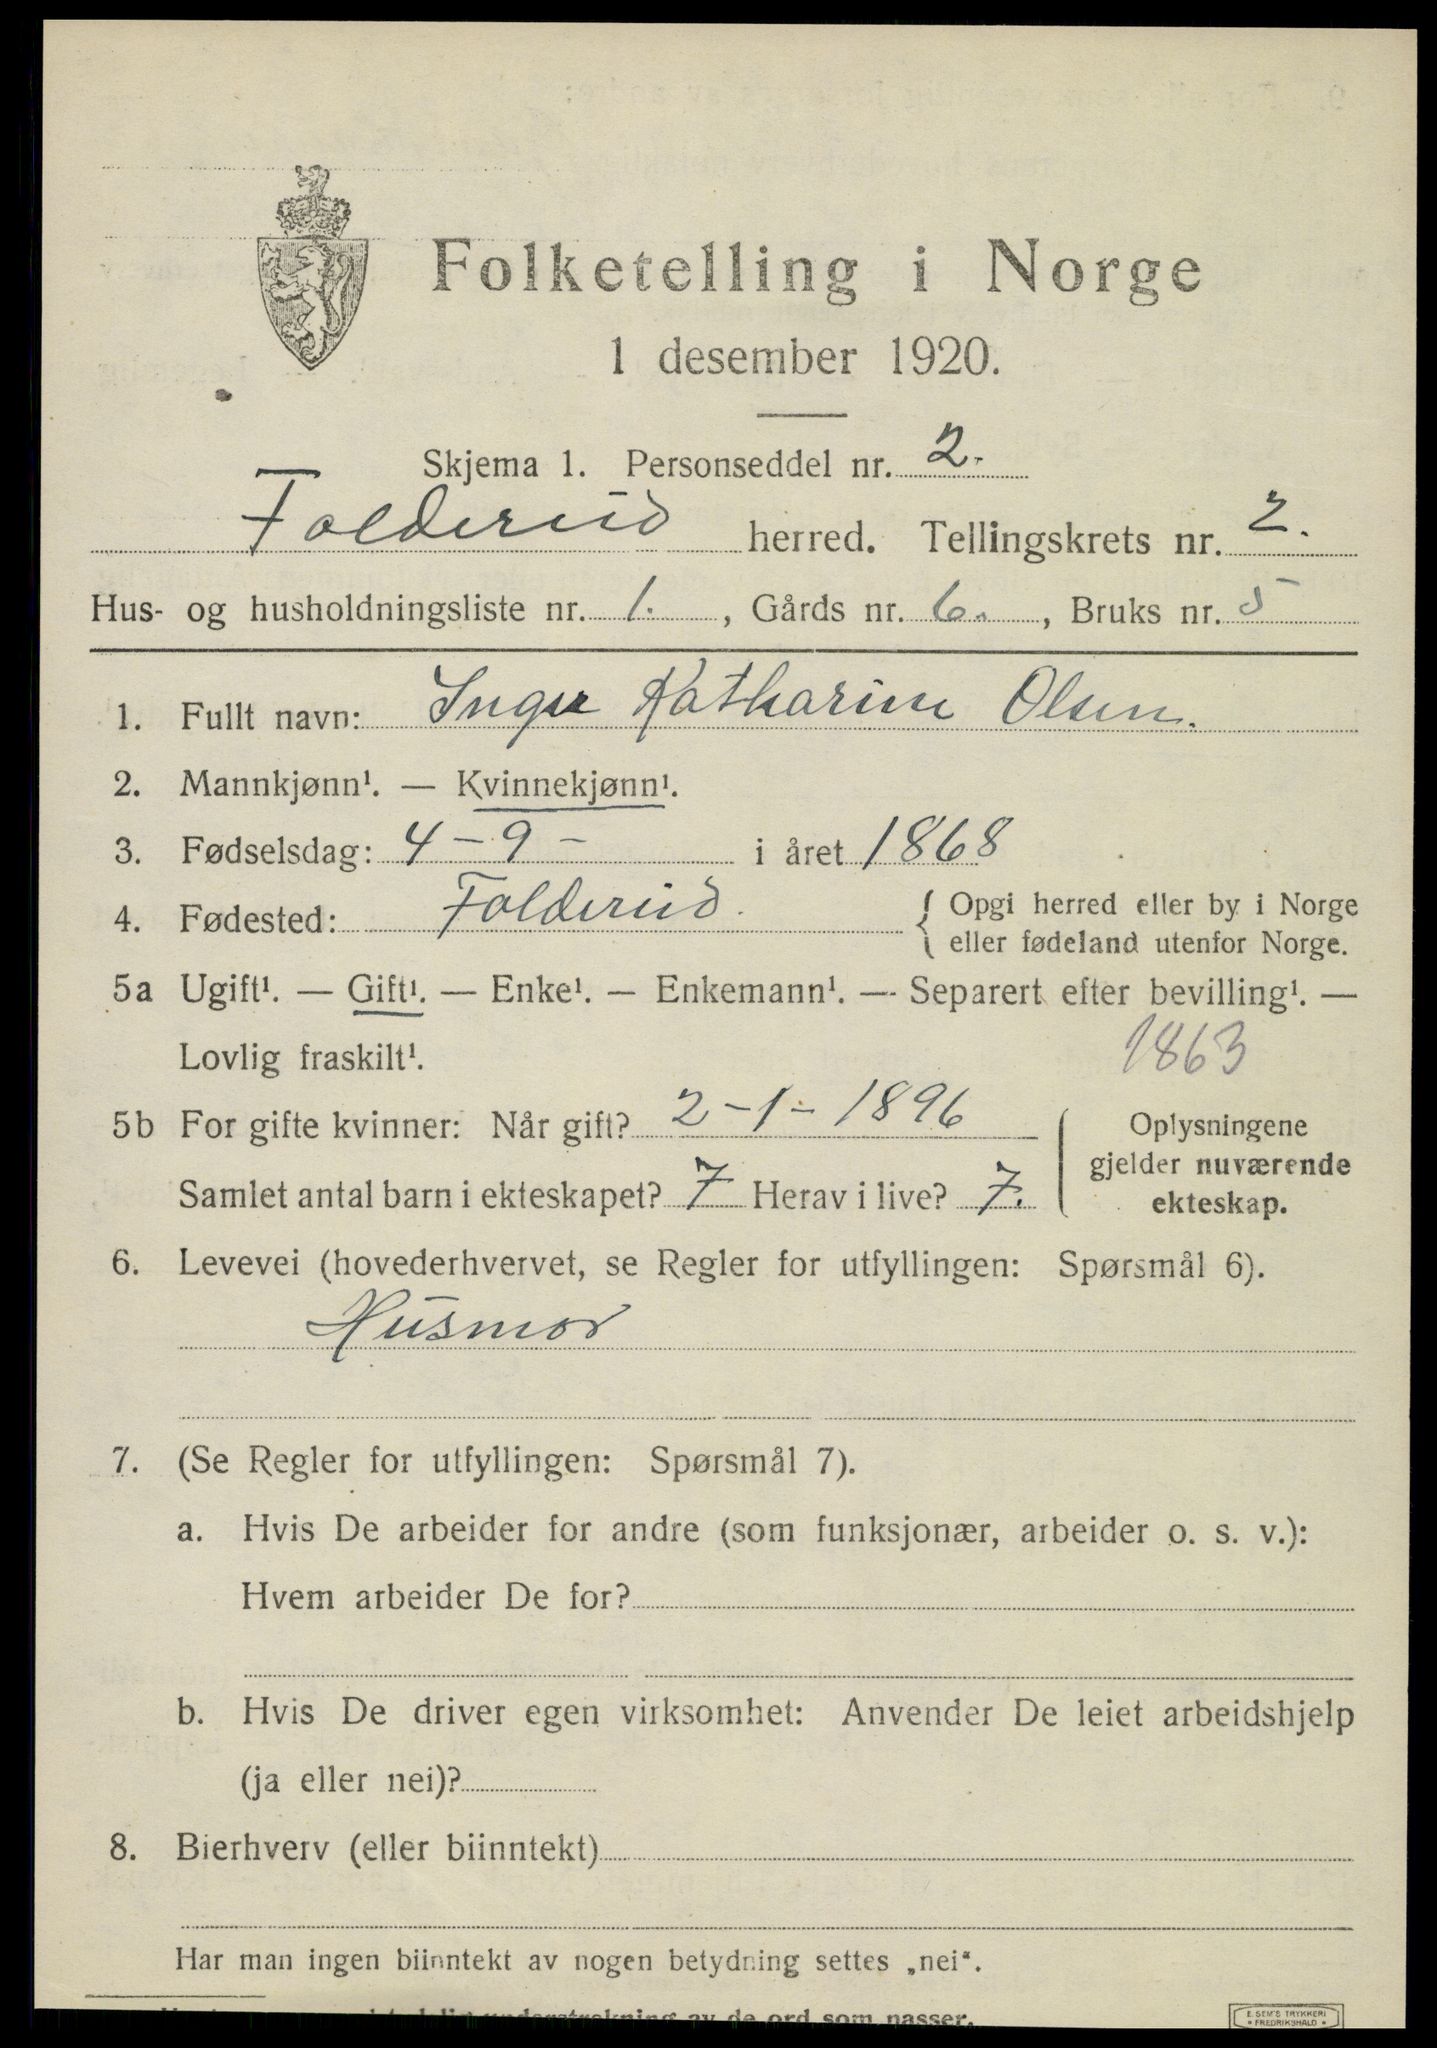 Folketelling i Norge
1 desember 1920.
Skjema 1. Personseddel nr. 2.
Foldereid herred. Tellingskrets nr. 2.
Hus- og husholdningsliste nr. 1., Gårds nr. 6., Bruks nr. 5
1. Fullt navn: Inger Katharine Olsen.
2. Mannkjønn¹. — Kvinnekjønn¹.
3. Fødselsdag: 4 - 9 - i året 1868
4. Fødested: Foldereid. { Opgi herred eller by i Norge
eller fødeland utenfor Norge.
5a Ugift¹. — Gift¹. — Enke¹. — Enkemann¹. — Separert efter bevilling¹. —
Lovlig fraskilt¹. 1863
5b For gifte kvinner: Når gift? 2 - 1 - 1896
Samlet antal barn i ekteskapet? 7 Herav i live? 7.
Oplysningene
gjelder nuværende
ekteskap.
6. Levevei (hovederhvervet, se Regler for utfyllingen: Spørsmål 6).
Husmor
7. (Se Regler for utfyllingen: Spørsmål 7).
a. Hvis De arbeider for andre (som funksjonær, arbeider o. s. v.):
Hvem arbeider De for?
b. Hvis De driver egen virksomhet: Anvender De leiet arbeidshjelp
(ja eller nei)?
8. Bierhverv (eller biinntekt)
Har man ingen biinntekt av nogen betydning settes „nei“.
understrekning av de ord som passer.
E. SEM'S TRYKKERI
• FREDRIKSHALD •